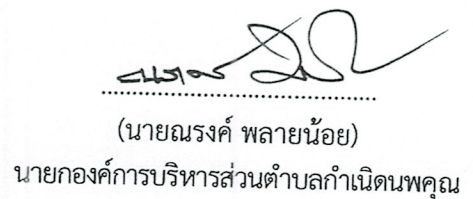 (นายณรงค์ พลายน้อย)
นายกองค์การบริหารส่วนตำบลกำเนิดนพคุณ